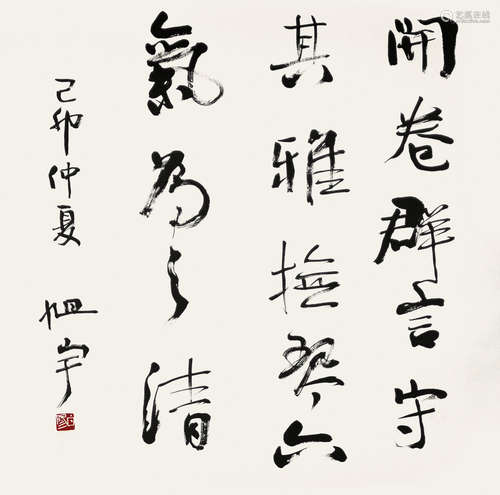 開卷群言守
其雅撫琴六
氣為之清
己卯仲夏
恒宇